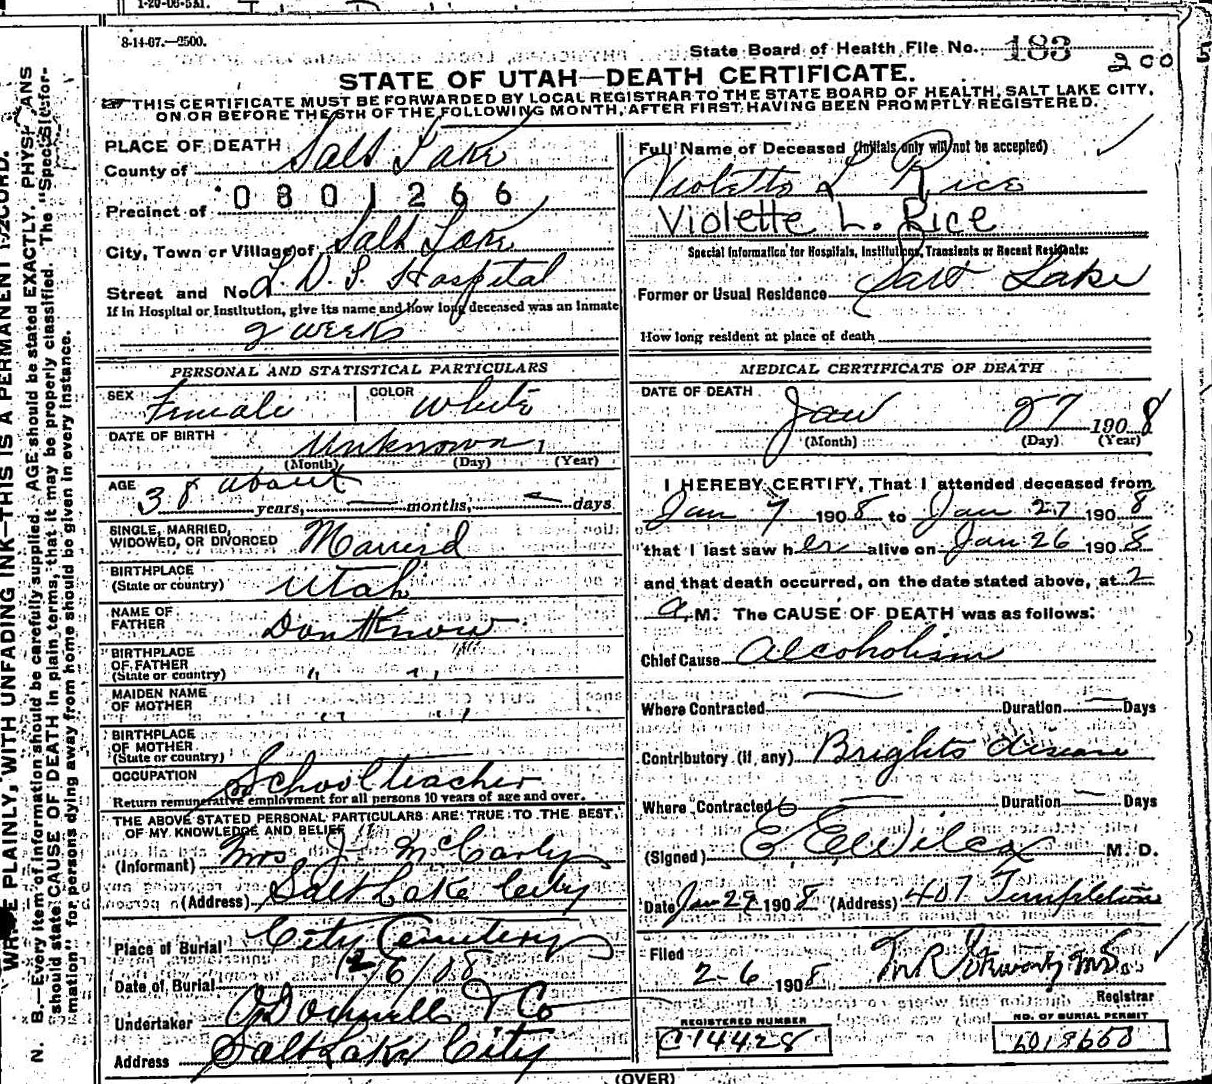 1-20-06-5M.
8-14-07.—2500.
State Board of Health File No. 183
200
STATE OF UTAH—DEATH CERTIFICATE.
THIS CERTIFICATE MUST BE FORWARDED BY LOCAL REGISTRAR TO THE STATE BOARD OF HEALTH, SALT LAKE CITY,
ON OR BEFORE THE 5TH OF THE FOLLOWING MONTH, AFTER FIRST HAVING BEEN PROMPTLY REGISTERED.
PLACE OF DEATH
County of Salt Lake
0801266
Precinct of
City, Town or Village of Salt Lake
Street and No. L. D. S. Hospital
If in Hospital or Institution, give its name and how long deceased was an inmate
2 weeks
Full Name of Deceased (Initials only will not be accepted)
Violette L Rice
Violette L. Rice
Special Information for Hospitals, Institutions, Transients or Recent Residents:
Former or Usual Residence Salt Lake
How long resident at place of death
PERSONAL AND STATISTICAL PARTICULARS
SEX Female COLOR White
DATE OF BIRTH Unknown 1
(Month) (Day) (Year)
AGE 38 about years, — months, — days
SINGLE, MARRIED,
WIDOWED, OR DIVORCED Married
BIRTHPLACE
(State or country) Utah
NAME OF
FATHER Dont Know
BIRTHPLACE
OF FATHER
(State or country) " "
MAIDEN NAME
OF MOTHER " "
BIRTHPLACE
OF MOTHER
(State or country)
OCCUPATION School teacher
Return remunerative employment for all persons 10 years of age and over.
THE ABOVE STATED PERSONAL PARTICULARS ARE TRUE TO THE BEST
OF MY KNOWLEDGE AND BELIEF
(Informant) Mrs J McCarty
(Address) Salt Lake City
Place of Burial City Cemetery
Date of Burial 2/6/08
Undertaker O'Donnell & Co
Address Salt Lake City
MEDICAL CERTIFICATE OF DEATH
DATE OF DEATH
Jan 27 1908
(Month) (Day) (Year)
I HEREBY CERTIFY, That I attended deceased from
Jan 7 1908 to Jan 27 1908
that I last saw her alive on Jan 26 1908
and that death occurred, on the date stated above, at 2
a. M. The CAUSE OF DEATH was as follows:
Chief Cause Alcoholism
Where Contracted — Duration — Days
Contributory (if any) Brights disease
Where Contracted — Duration — Days
(Signed) E. E. Wilcox M. D.
Date Jan 29 1908 (Address) 407 Templeton
Filed
2-6 1908
Registrar
REGISTERED NUMBER
C14428
NO. OF BURIAL PERMIT
(OVER)
WRITE PLAINLY, WITH UNFADING INK—THIS IS A PERMANENT RECORD.
N. B.—Every item of information should be carefully supplied. AGE should be stated EXACTLY. PHYSICIANS
should state CAUSE OF DEATH in plain terms, that it may be properly classified. The "Special Infor-
mation" for persons dying away from home should be given in every instance.